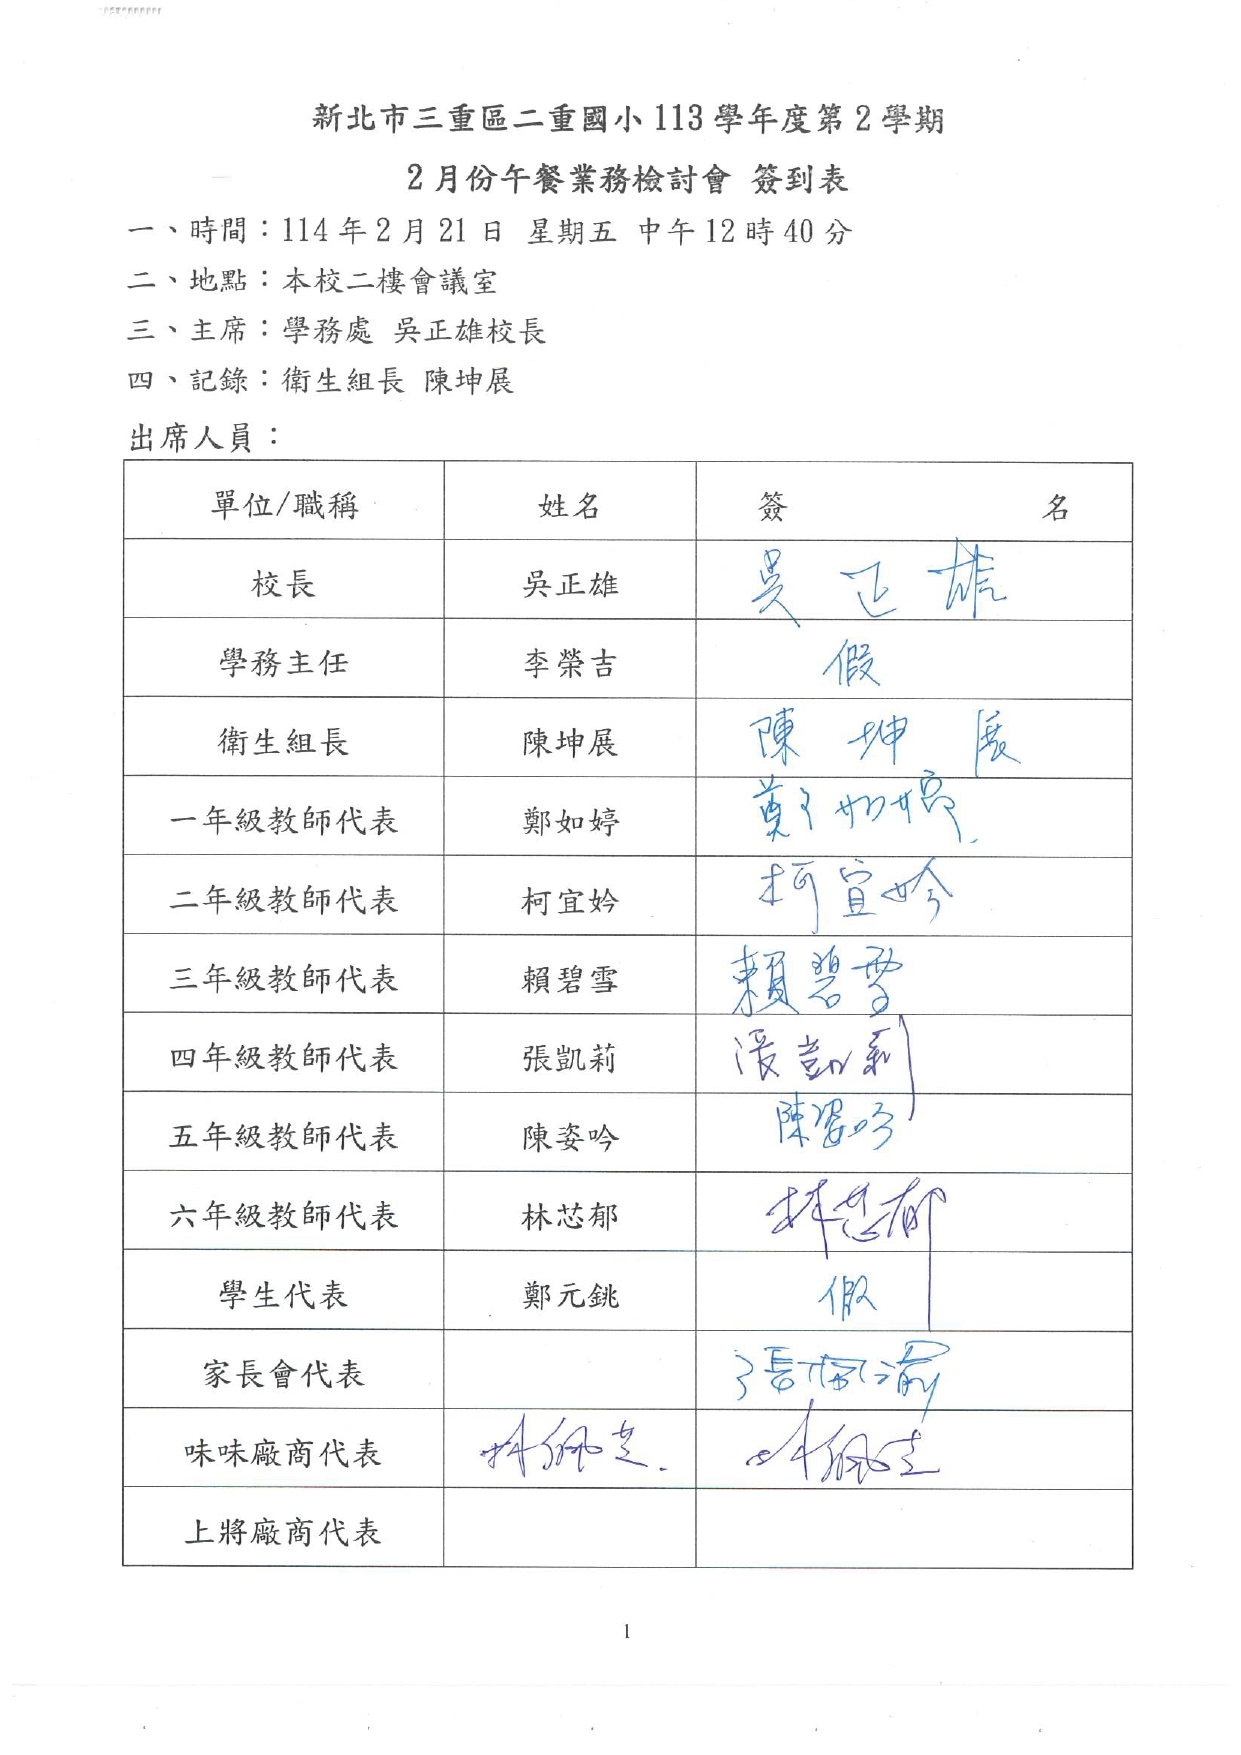 新北市三重區二重國小113學年度第2學期
2月份午餐業務檢討會 簽到表
一、時間：114年2月21日 星期五 中午12時40分
二、地點：本校二樓會議室
三、主席：學務處 吳正雄校長
四、記錄：衛生組長 陳坤展
出席人員：
單位/職稱 姓名 簽 名
校長 吳正雄 吳正雄
學務主任 李榮吉 假
衛生組長 陳坤展 陳坤展
一年級教師代表 鄭如婷 鄭如婷
二年級教師代表 柯宜妗 柯宜妗
三年級教師代表 賴碧雪 賴碧雪
四年級教師代表 張凱莉 張凱莉
五年級教師代表 陳姿吟 陳姿吟
六年級教師代表 林芯郁 林芯郁
學生代表 鄭元銚 假
家長會代表 張
味味廠商代表 林佩 林佩
上將廠商代表
1